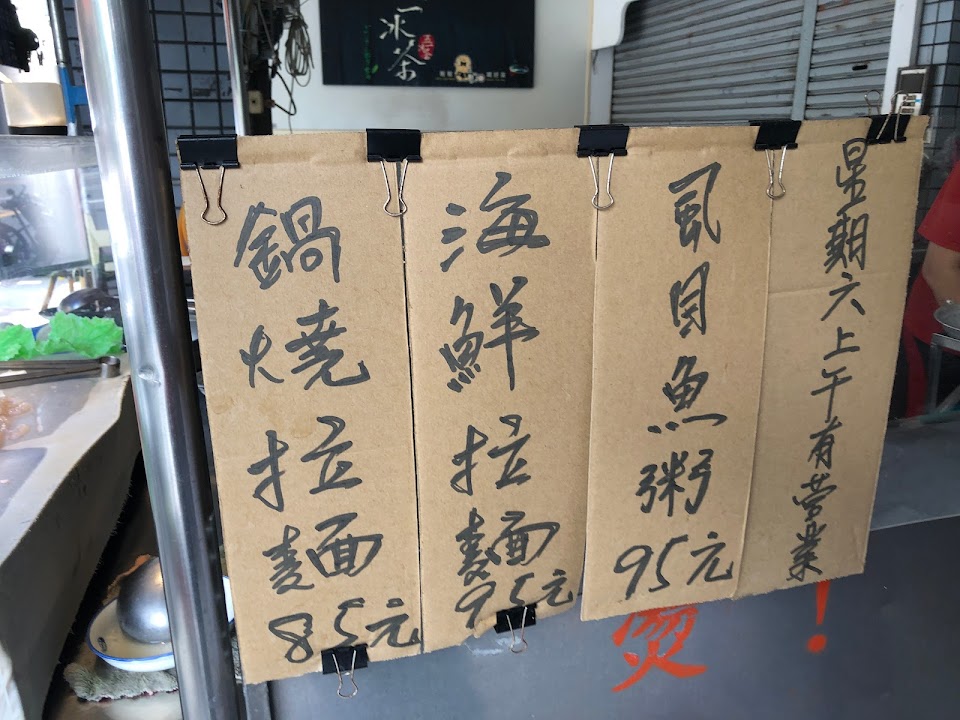 一沐茶
鍋燒拉麵
85元
海鮮拉麵
95元
虱目魚粥
95元
星期六上午有營業
燙!